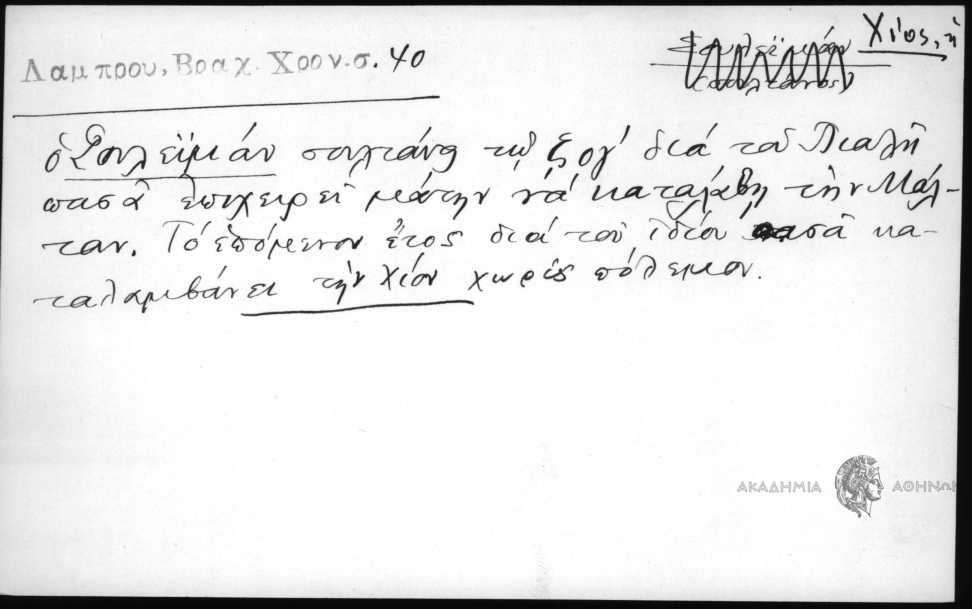 Λαμπρου, Βραχ. Χρον. σ. 40
Χίος, ἡ
Σουλεϊμάν
σουλτάνος
ὁ Σουλεϊμάν σουλτάνος τῷ ζογ' διά τοῦ Πιαλῆ
πασᾶ ἐπιχειρεῖ μάτην νά καταλάβῃ τὴν Μάλ-
ταν. Τό ἑπόμενον ἔτος διά τοῦ ἰδίου πασᾶ κα-
ταλαμβάνει τὴν Χίον χωρίς πόλεμον.
ΑΚΑΔΗΜΙΑ ΑΘΗΝΩΝ